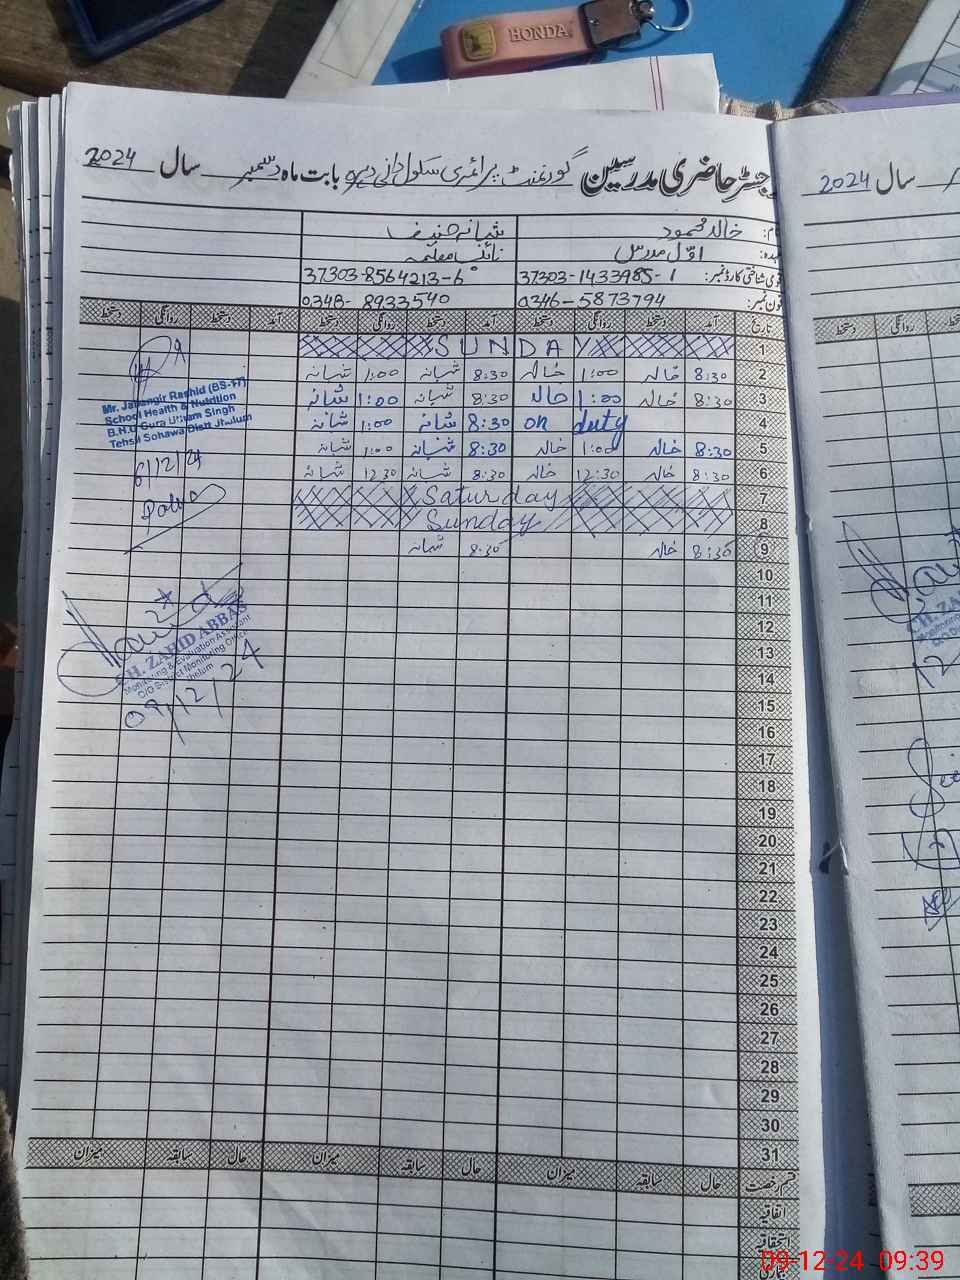 HONDA
رجسٹر حاضری مدرسین گورنمنٹ پرائمری سکول بابت ماہ دسمبر سال 2024
نام: خالد محمود شبانہ حنیف
عہدہ: اوّل مدرس نائب معلمہ
قومی شناختی کارڈ نمبر: 37303-1433985-1 37303-8564213-6
فون نمبر: 0346-5873794 0348-8933540
تاریخ آمد دستخط روانگی دستخط آمد دستخط روانگی دستخط آمد دستخط روانگی دستخط
1 SUNDAY
2 8:30 خالد 1:00 خالد 8:30 شبانہ 1:00 شبانہ
3 8:30 خالد 1:00 خالد 8:30 شبانہ 1:00 شبانہ
4 on duty 8:30 شبانہ 1:00 شبانہ
5 8:30 خالد 1:00 خالد 8:30 شبانہ 1:00 شبانہ
6 8:30 خالد 12:30 خالد 8:30 شبانہ 12:30 شبانہ
7 Saturday
8 Sunday
9 8:30 خالد 8:30 شبانہ
10
11
12
13
14
15
16
17
18
19
20
21
22
23
24
25
26
27
28
29
30
31
Mr. Jahangir Rashid (BS-17)
School Health & Nutrition
B.H.U Gura Uttam Singh
Tehsil Sohawa Distt Jhelum
6/12/24
CH. ZAHID ABBAS
Monitoring & Evaluation Assistant
O/O District Monitoring Officer
Jhelum
09/12/24
قسم رخصت حال سابقہ میزان حال سابقہ میزان حال سابقہ میزان
اتفاقیہ
استحقاقیہ
بیماری
سال 2024
دستخط روانگی
09-12-24 09:39